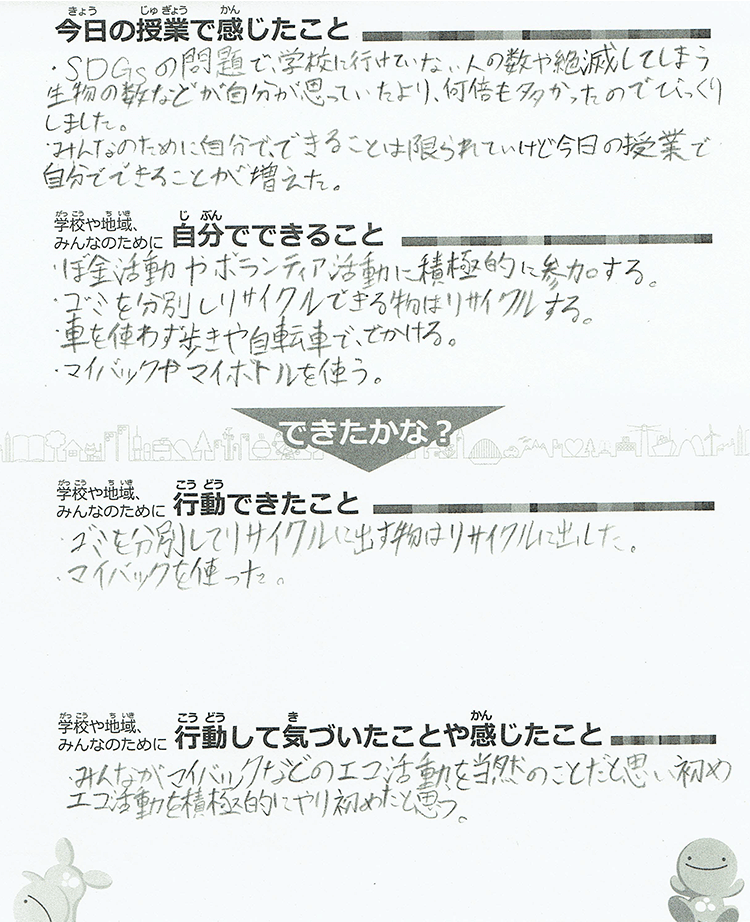 今日の授業で感じたこと
・SDGsの問題で、学校に行けていない人の数や絶滅してしまう
生物の数などが自分が思っていたより、何倍も多かったのでびっくり
しました。
・みんなのために自分で、できることは限られていけど今日の授業で
自分でできることが増えた。
学校や地域、
みんなのために 自分でできること
・ぼ金活動やボランティア活動に積極的に参加する。
・ゴミを分別しリサイクルできる物はリサイクルする。
・車を使わず歩きや自転車で、でかける。
・マイバックやマイボトルを使う。
できたかな？
学校や地域、
みんなのために 行動できたこと
・ゴミを分別してリサイクルに出す物はリサイクルに出した。
・マイバックを使った。
学校や地域、
みんなのために 行動して気づいたことや感じたこと
・みんながマイバックなどのエコ活動を当然のことだと思い初め
エコ活動を積極的にやり初めたと思う。